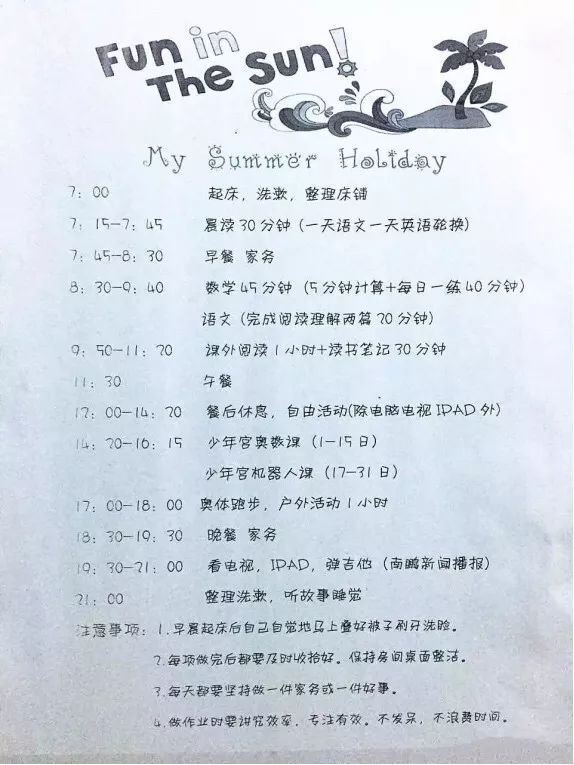 Fun in
The Sun!
My Summer Holiday
7：00 起床，洗漱，整理床铺
7：15—7：45 晨读30分钟（一天语文一天英语轮换）
7：45—8：30 早餐 家务
8：30—9：40 数学45分钟（5分钟计算+每日一练40分钟）
语文（完成阅读理解两篇20分钟）
9：50—11：20 课外阅读1小时+读书笔记30分钟
11：30 午餐
12：00—14：20 餐后休息，自由活动(除电脑电视IPAD外)
14：20—16：15 少年宫奥数课（1—15日）
少年宫机器人课（17—31日）
17：00—18：00 奥体跑步，户外活动1小时
18：30—19：30 晚餐 家务
19：30—21：00 看电视，IPAD，弹吉他（南鹏新闻播报）
21：00 整理洗漱，听故事睡觉
注意事项：1.早晨起床后自己自觉地马上叠好被子刷牙洗脸。
2.每项做完后都要及时收拾好。保持房间桌面整洁。
3.每天都要坚持做一件家务或一件好事。
4.做作业时要讲究效率，专注有效。不发呆，不浪费时间。